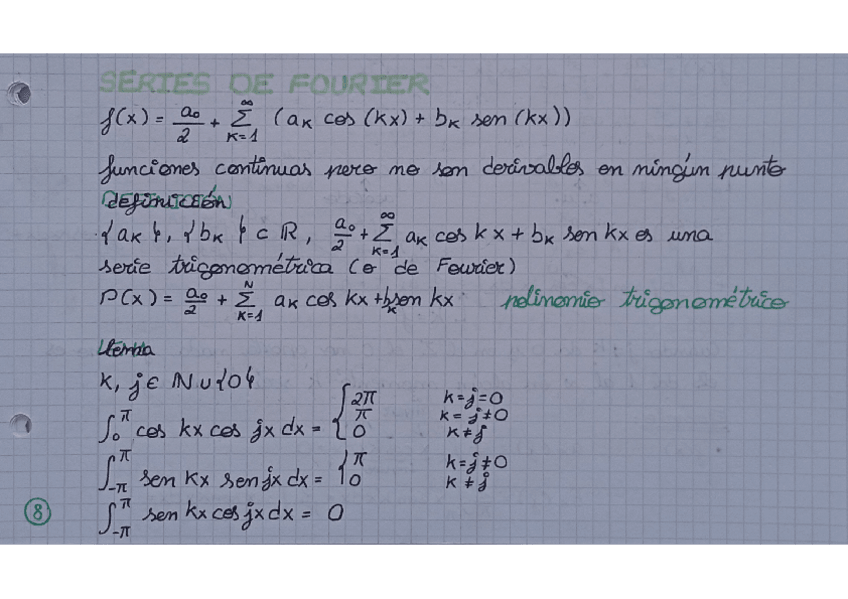 SERIES DE FOURIER
f(x) = a₀/2 + ∑_{K=1}^{∞} (aₖ cos (kx) + bₖ sen (kx))
funciones continuas pero no son derivables en ningún punto
definición
{aₖ}, {bₖ} ⊂ ℝ, a₀/2 + ∑_{K=1}^{∞} aₖ cos kx + bₖ sen kx es una
serie trigonométrica (o de Fourier)
P(x) = a₀/2 + ∑_{K=1}^{N} aₖ cos kx + bₖ sen kx polinomio trigonométrico
Lema
K, j ∈ ℕ ∪ {0}
∫₀^π cos kx cos jx dx = { 2π K=j=0
π K=j≠0
0 K≠j
∫_{-π}^{π} sen kx sen jx dx = { π K=j≠0
0 K≠j
∫_{-π}^{π} sen kx cos jx dx = 0
8